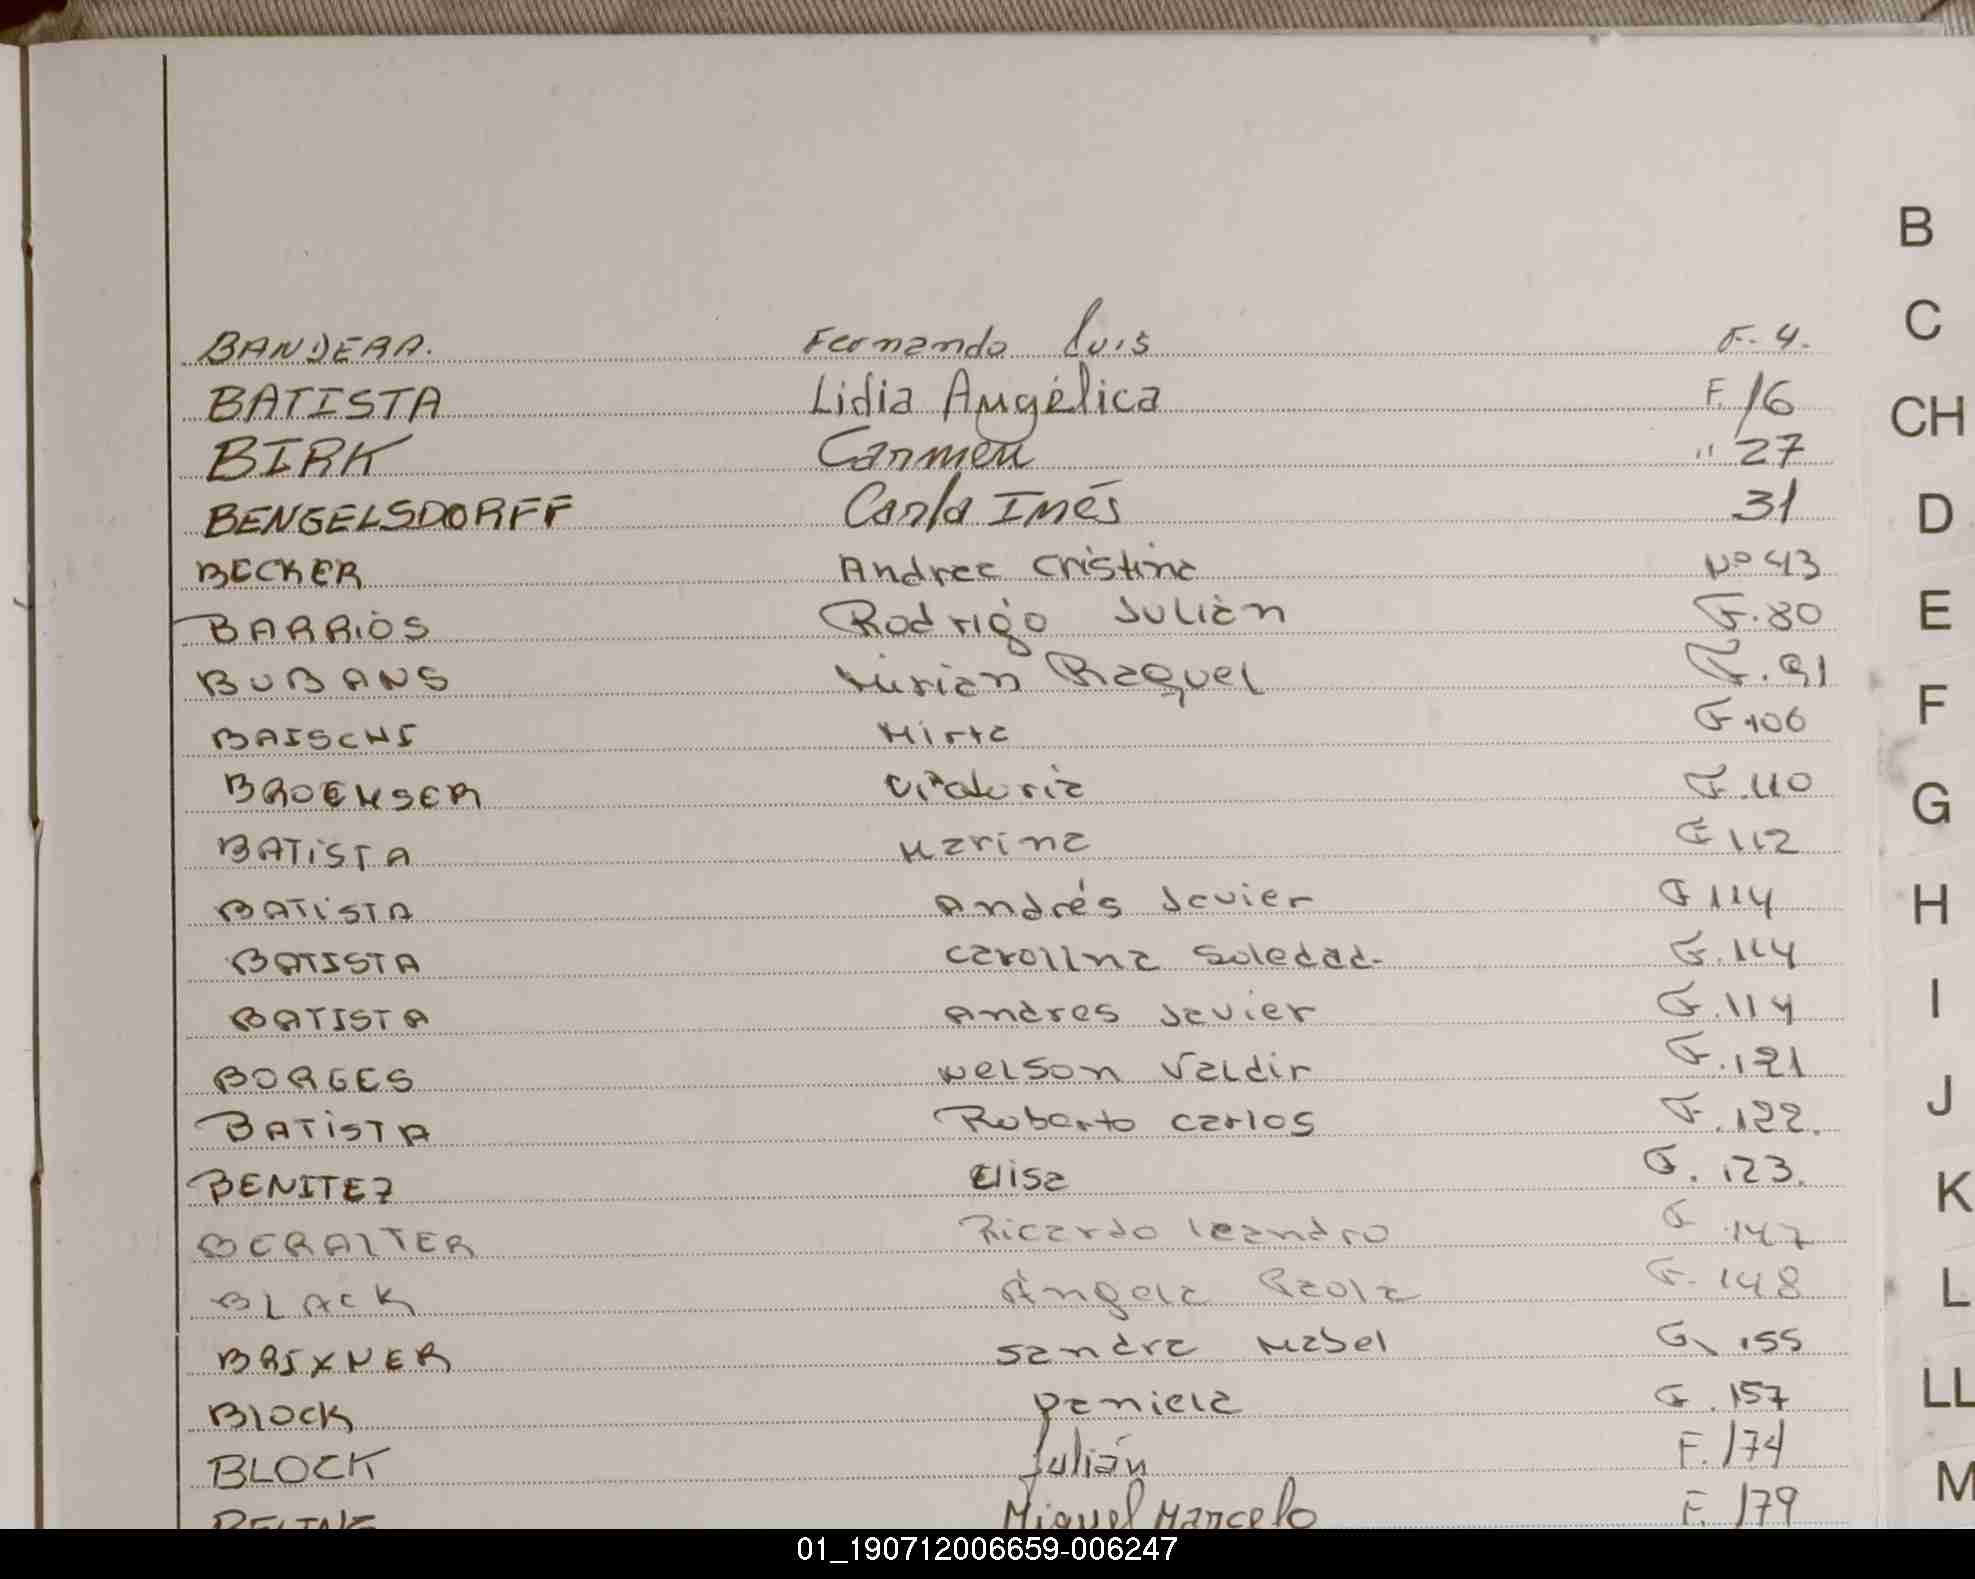 BANDERA. Fernando Luis F. 4.
BATISTA Lidia Angélica F. 16
BIRK Carmen " 27
BENGELSDORFF Carla Inés 31
BECKER Andrea Cristina Nº 43
BARRiOS Rodrigo Julián F. 80
BUBANS Mirian Raquel F. 91
BAISCHI Mirta F 106
BROEMSER Victoria F. 110
BATiSTA Marina F 112
BATiSTA Andrés Javier F 114
BATISTA Carolina Soledad. F. 114
BATISTA Andres Javier F. 114
BORGES Nelson Valdir F. 121
BATiSTA Roberto Carlos F. 122.
BENITEZ Elisa F. 123.
Ricardo Leandro F 147
BLACK Ángela Paola F. 148
BRIXNER Sandra Mabel F. 155
BLOCK Daniela F. 157
BLOCK Julián F. 174
Miguel Marcelo F. 179
B
C
CH
D
E
F
G
H
I
J
K
L
LL
M
01_190712006659-006247